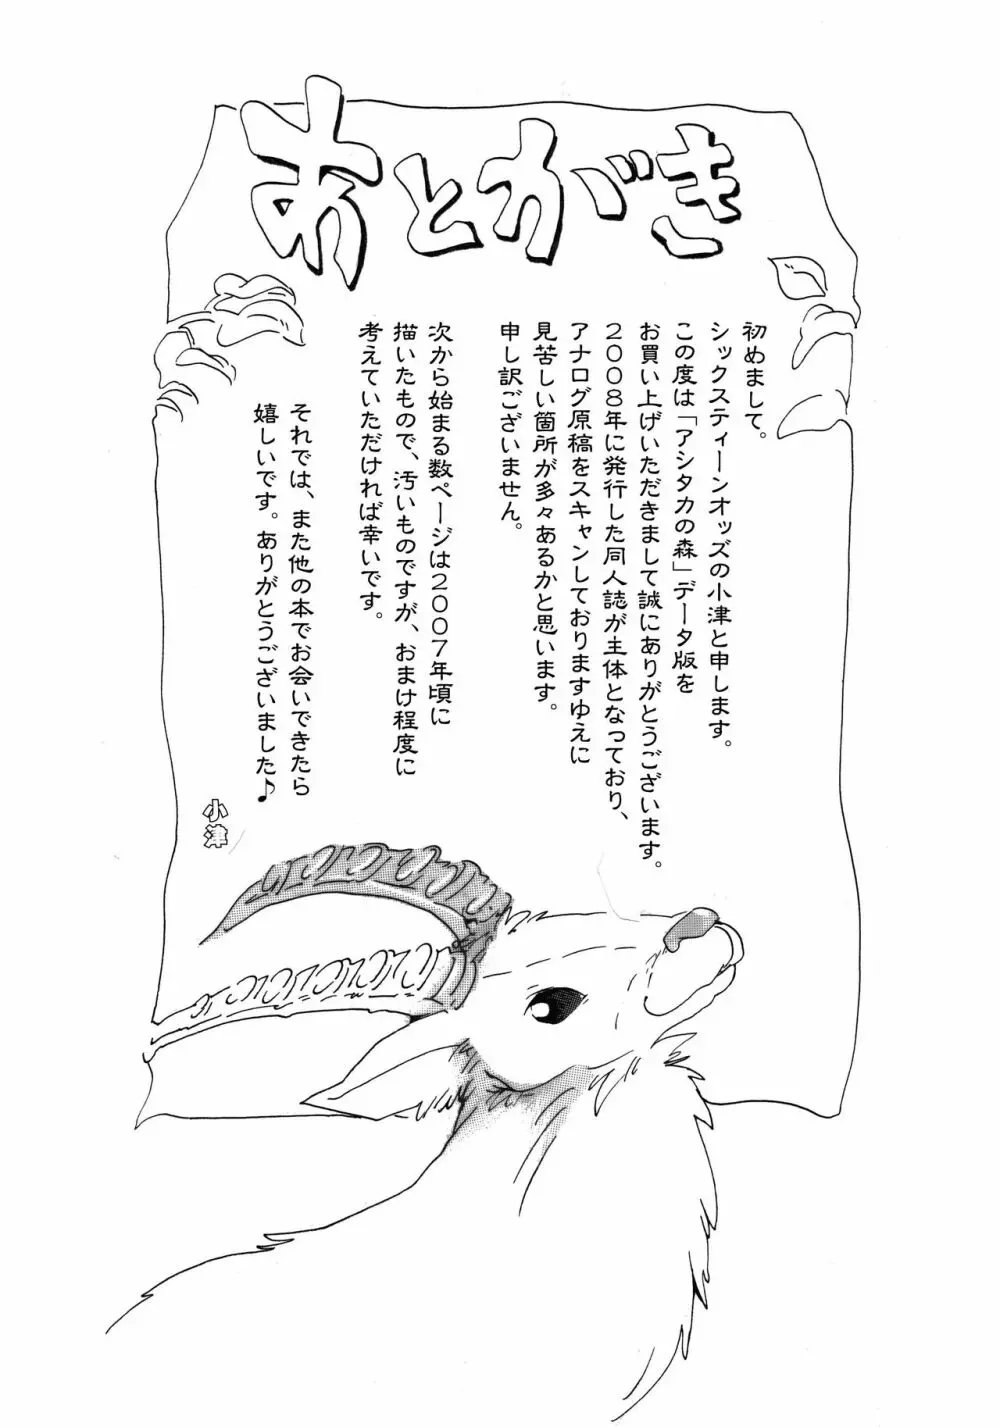 あとがき
初めまして。
シックスティーンオッズの小津と申します。
この度は「アシタカの森」データ版を
お買い上げいただきまして誠にありがとうございます。
2008年に発行した同人誌が主体となっており、
アナログ原稿をスキャンしておりますゆえに
見苦しい箇所が多々あるかと思います。
申し訳ございません。
次から始まる数ページは2007年頃に
描いたもので、汚いものですが、おまけ程度に
考えていただければ幸いです。
それでは、また他の本でお会いできたら
嬉しいです。ありがとうございました♪
小津